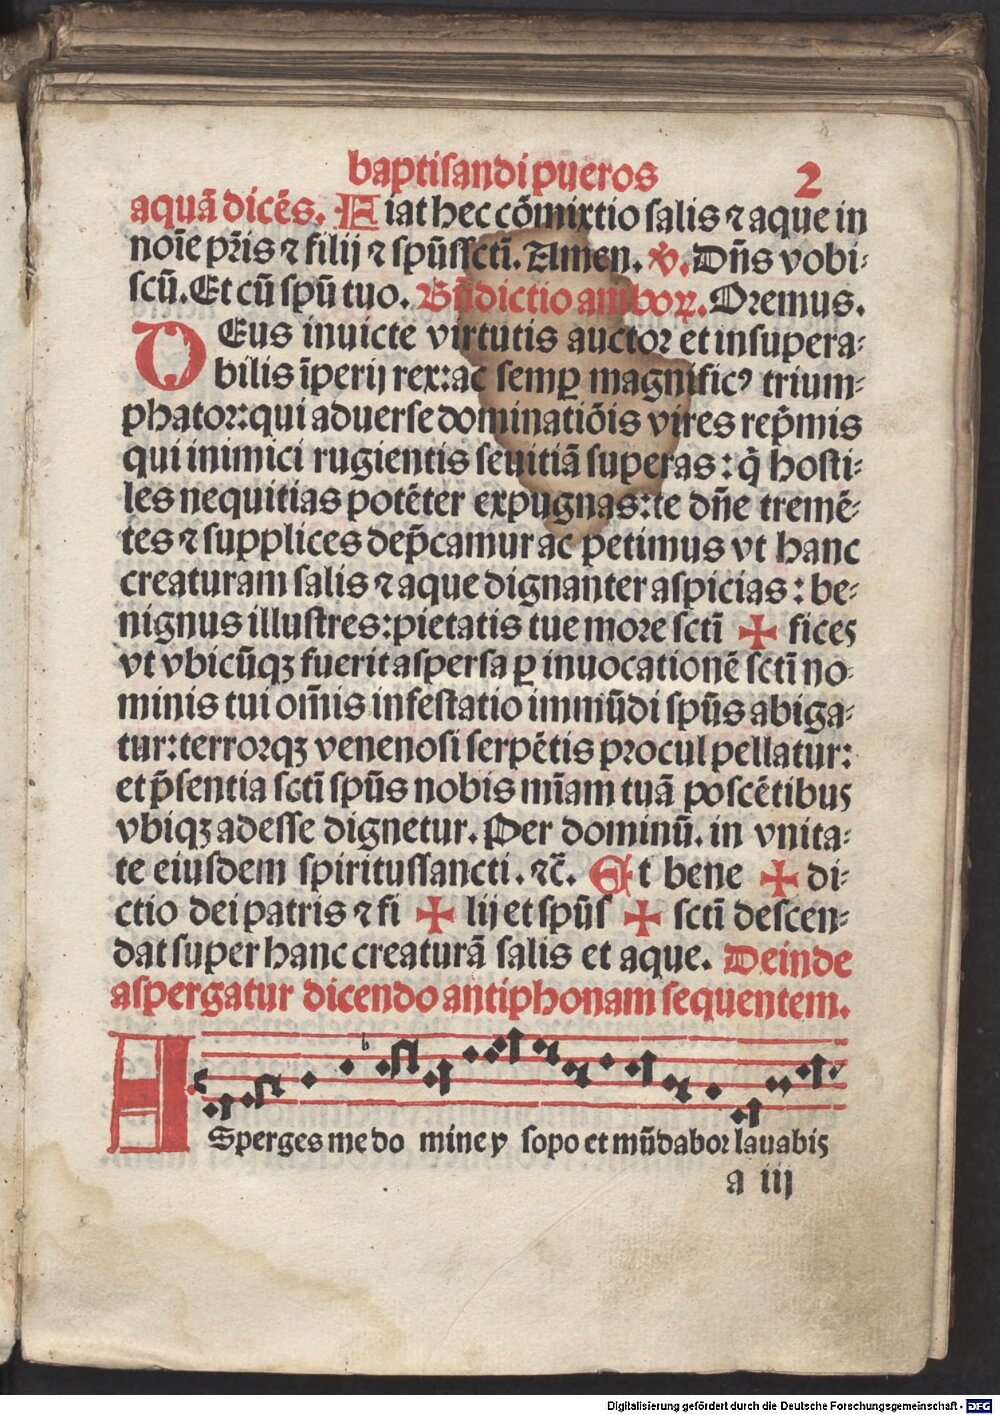 baptisandi pueros 2
aquā dicēs. Fiat hec cōmixtio salis ⁊ aque in
noīe pr̄is ⁊ filij ⁊ spūssctī. Amen. ℣. Dn̄s vobi⸗
scū. Et cū spū tuo. Bn̄dictio amboꝝ. Oremus.
DEus inuicte virtutis auctor et insupera⸗
bilis īperij rex: ac semꝑ magnificꝰ trium⸗
phator: qui aduerse dominatiōis vires rep̄mis
qui inimici rugientis seuitiā superas: q̇ hosti⸗
les nequitias potēter expugnas: te dn̄e tremē⸗
tes ⁊ supplices dep̄camur ac petimus vt hanc
creaturam salis ⁊ aque dignanter aspicias: be⸗
nignus illustres: pietatis tue more sctī ✠ fices
vt vbicūqꝫ fuerit aspersa ꝑ inuocationē sctī no⸗
minis tui om̄is infestatio immūdi spūs abiga⸗
tur: terrorqꝫ venenosi serpētis procul pellatur:
et p̄sentia sctī spūs nobis mīam tuā poscētibus
vbiqꝫ adesse dignetur. Per dominū. in vnita⸗
te eiusdem spiritussancti. ⁊c̄. Et bene ✠ di⸗
ctio dei patris ⁊ fi ✠ lij et spūs ✠ sctī descen⸗
dat super hanc creaturā salis et aque. Deinde
aspergatur dicendo antiphonam sequentem.
ASperges me do mine y sopo et mūdabor lauabis
a iij
Digitalisierung gefördert durch die Deutsche Forschungsgemeinschaft - DFG